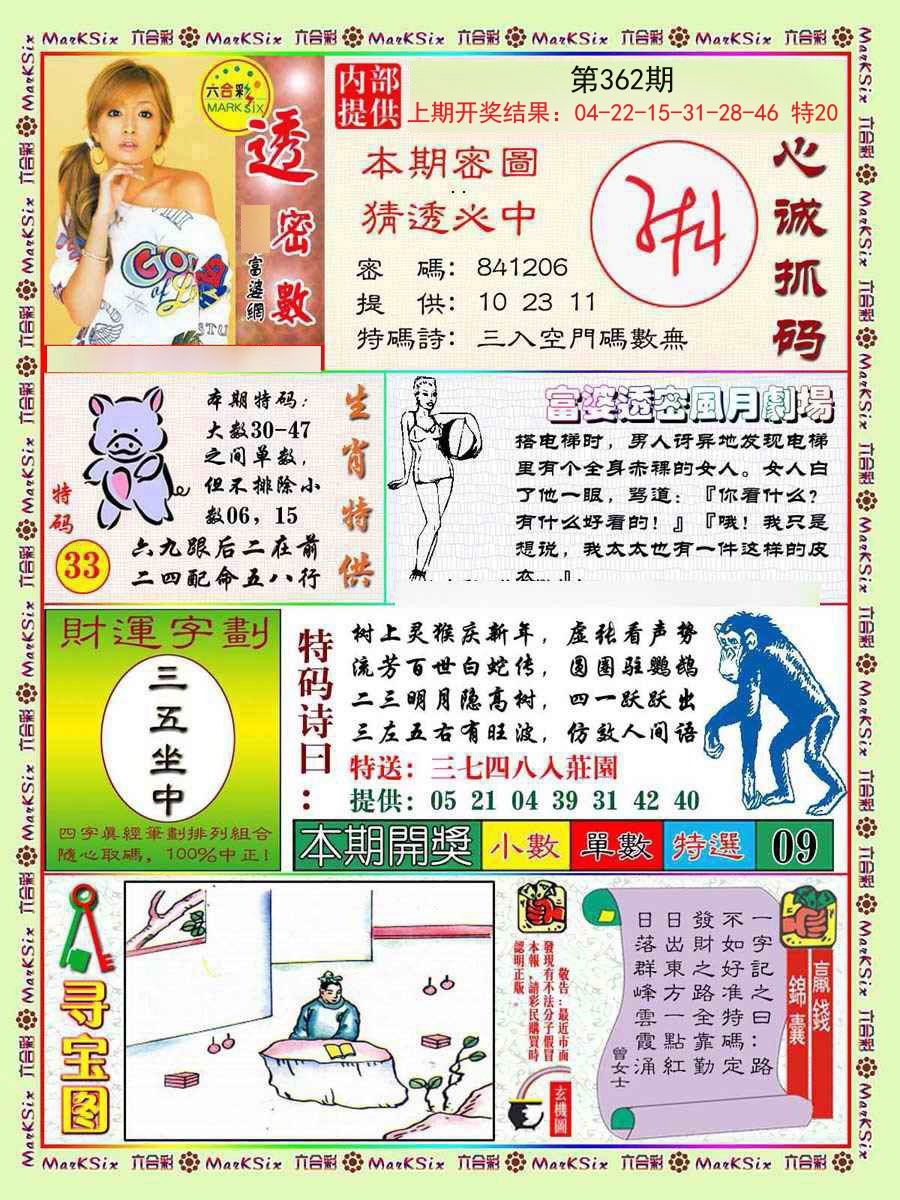 MarKSix 六合彩 MarKSix 六合彩 MarKSix 六合彩 MarKSix 六合彩 MarKSix 六合彩
六合彩
MARK SIX
透密數
富婆網
内部提供
第362期
上期开奖结果：04-22-15-31-28-46 特20
本期密圖
猜透必中
密 碼：841206
提 供：10 23 11
特碼詩：三入空門碼數無
心诚抓码
本期特码：
大数30-47
之间单数，
但不排除小
数06，15
六九跟后二在前
二四配命五八行
特码
33
生肖特供
富婆透密風月劇場
搭电梯时，男人讶异地发现电梯
里有个全身赤裸的女人。女人白
了他一眼，骂道：『你看什么？
有什么好看的！』『哦！我只是
想说，我太太也有一件这样的皮
財運字劃
三五坐中
四字真經筆劃排列組合
隨心取碼，100%中正!
特码诗曰：
树上灵猴庆新年，虚张看声势
流芳百世白蛇传，圆圈驻鹦鹉
二三明月隐高树，四一跃跃出
三左五右有旺波，仿效人间语
特送：三七四八入莊園
提供：05 21 04 39 31 42 40
本期開獎 小數 單數 特選 09
寻宝图
敬告：最近市面
發現有不法分子假冒
本報，請彩民購買時
認明正版。
玄機圖
贏錢錦囊
一字記之曰：路
不如好准特碼定
發財之路全靠勤
日出東方一點紅
日落群峰雲霞涌
曾女士
MarKSix 六合彩 MarKSix 六合彩 MarKSix 六合彩 MarKSix 六合彩 MarKSix 六合彩